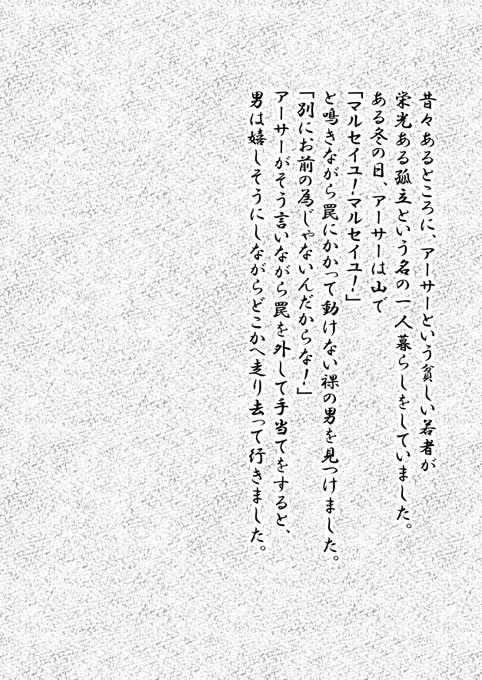 昔々あるところに、アーサーという貧しい若者が
栄光ある孤立という名の一人暮らしをしていました。
ある冬の日、アーサーは山で
「マルセイユ！マルセイユ！」
と鳴きながら罠にかかって動けない裸の男を見つけました。
「別にお前の為じゃないんだからな！」
アーサーがそう言いながら罠を外して手当てをすると、
男は嬉しそうにしながらどこかへ走り去って行きました。